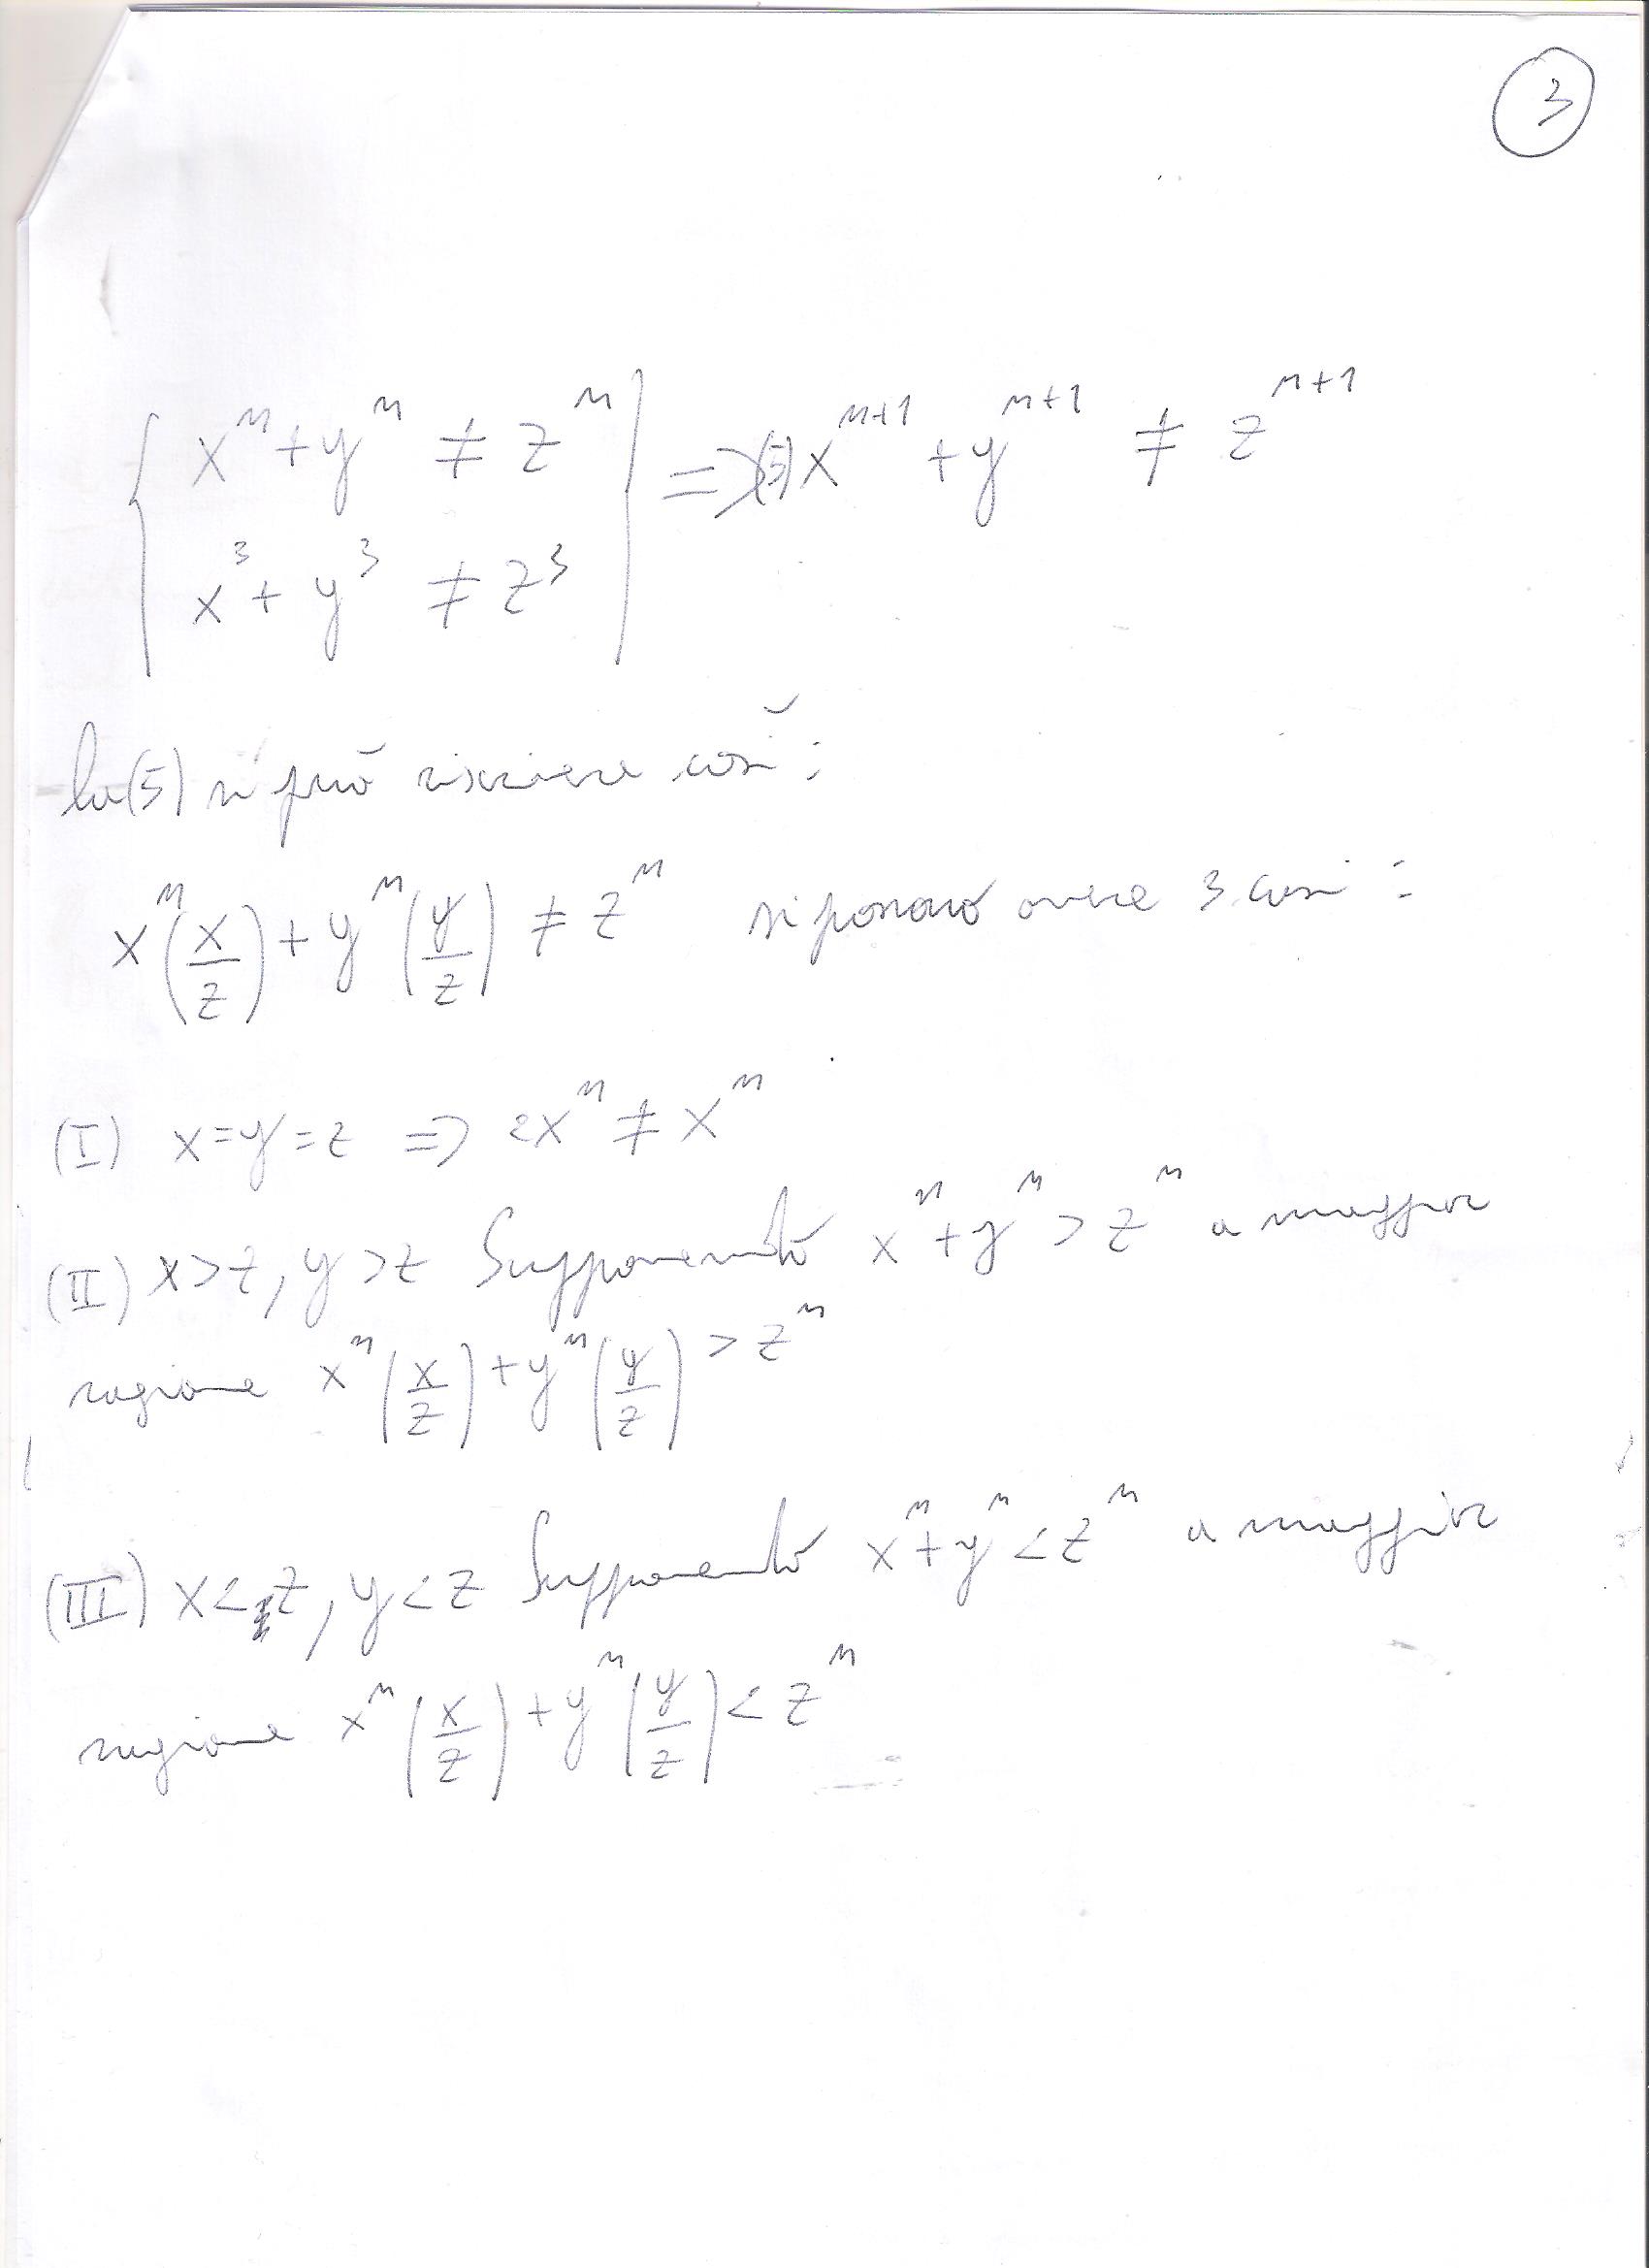 3
xⁿ + yⁿ ≠ zⁿ ⇒ (5) xⁿ⁺¹ + yⁿ⁺¹ ≠ zⁿ⁺¹
x³ + y³ ≠ z³
la (5) si può riscrivere così:
xⁿ(x/z) + yⁿ(y/z) ≠ zⁿ si possono avere 3 casi:
(I) x=y=z ⇒ 2xⁿ ≠ xⁿ
(II) x>z, y>z Supponendo xⁿ+yⁿ > zⁿ a maggior
ragione xⁿ(x/z) + yⁿ(y/z) > zⁿ
(III) x<z, y<z Supponendo xⁿ+yⁿ < zⁿ a maggior
ragione xⁿ(x/z) + yⁿ(y/z) < zⁿ